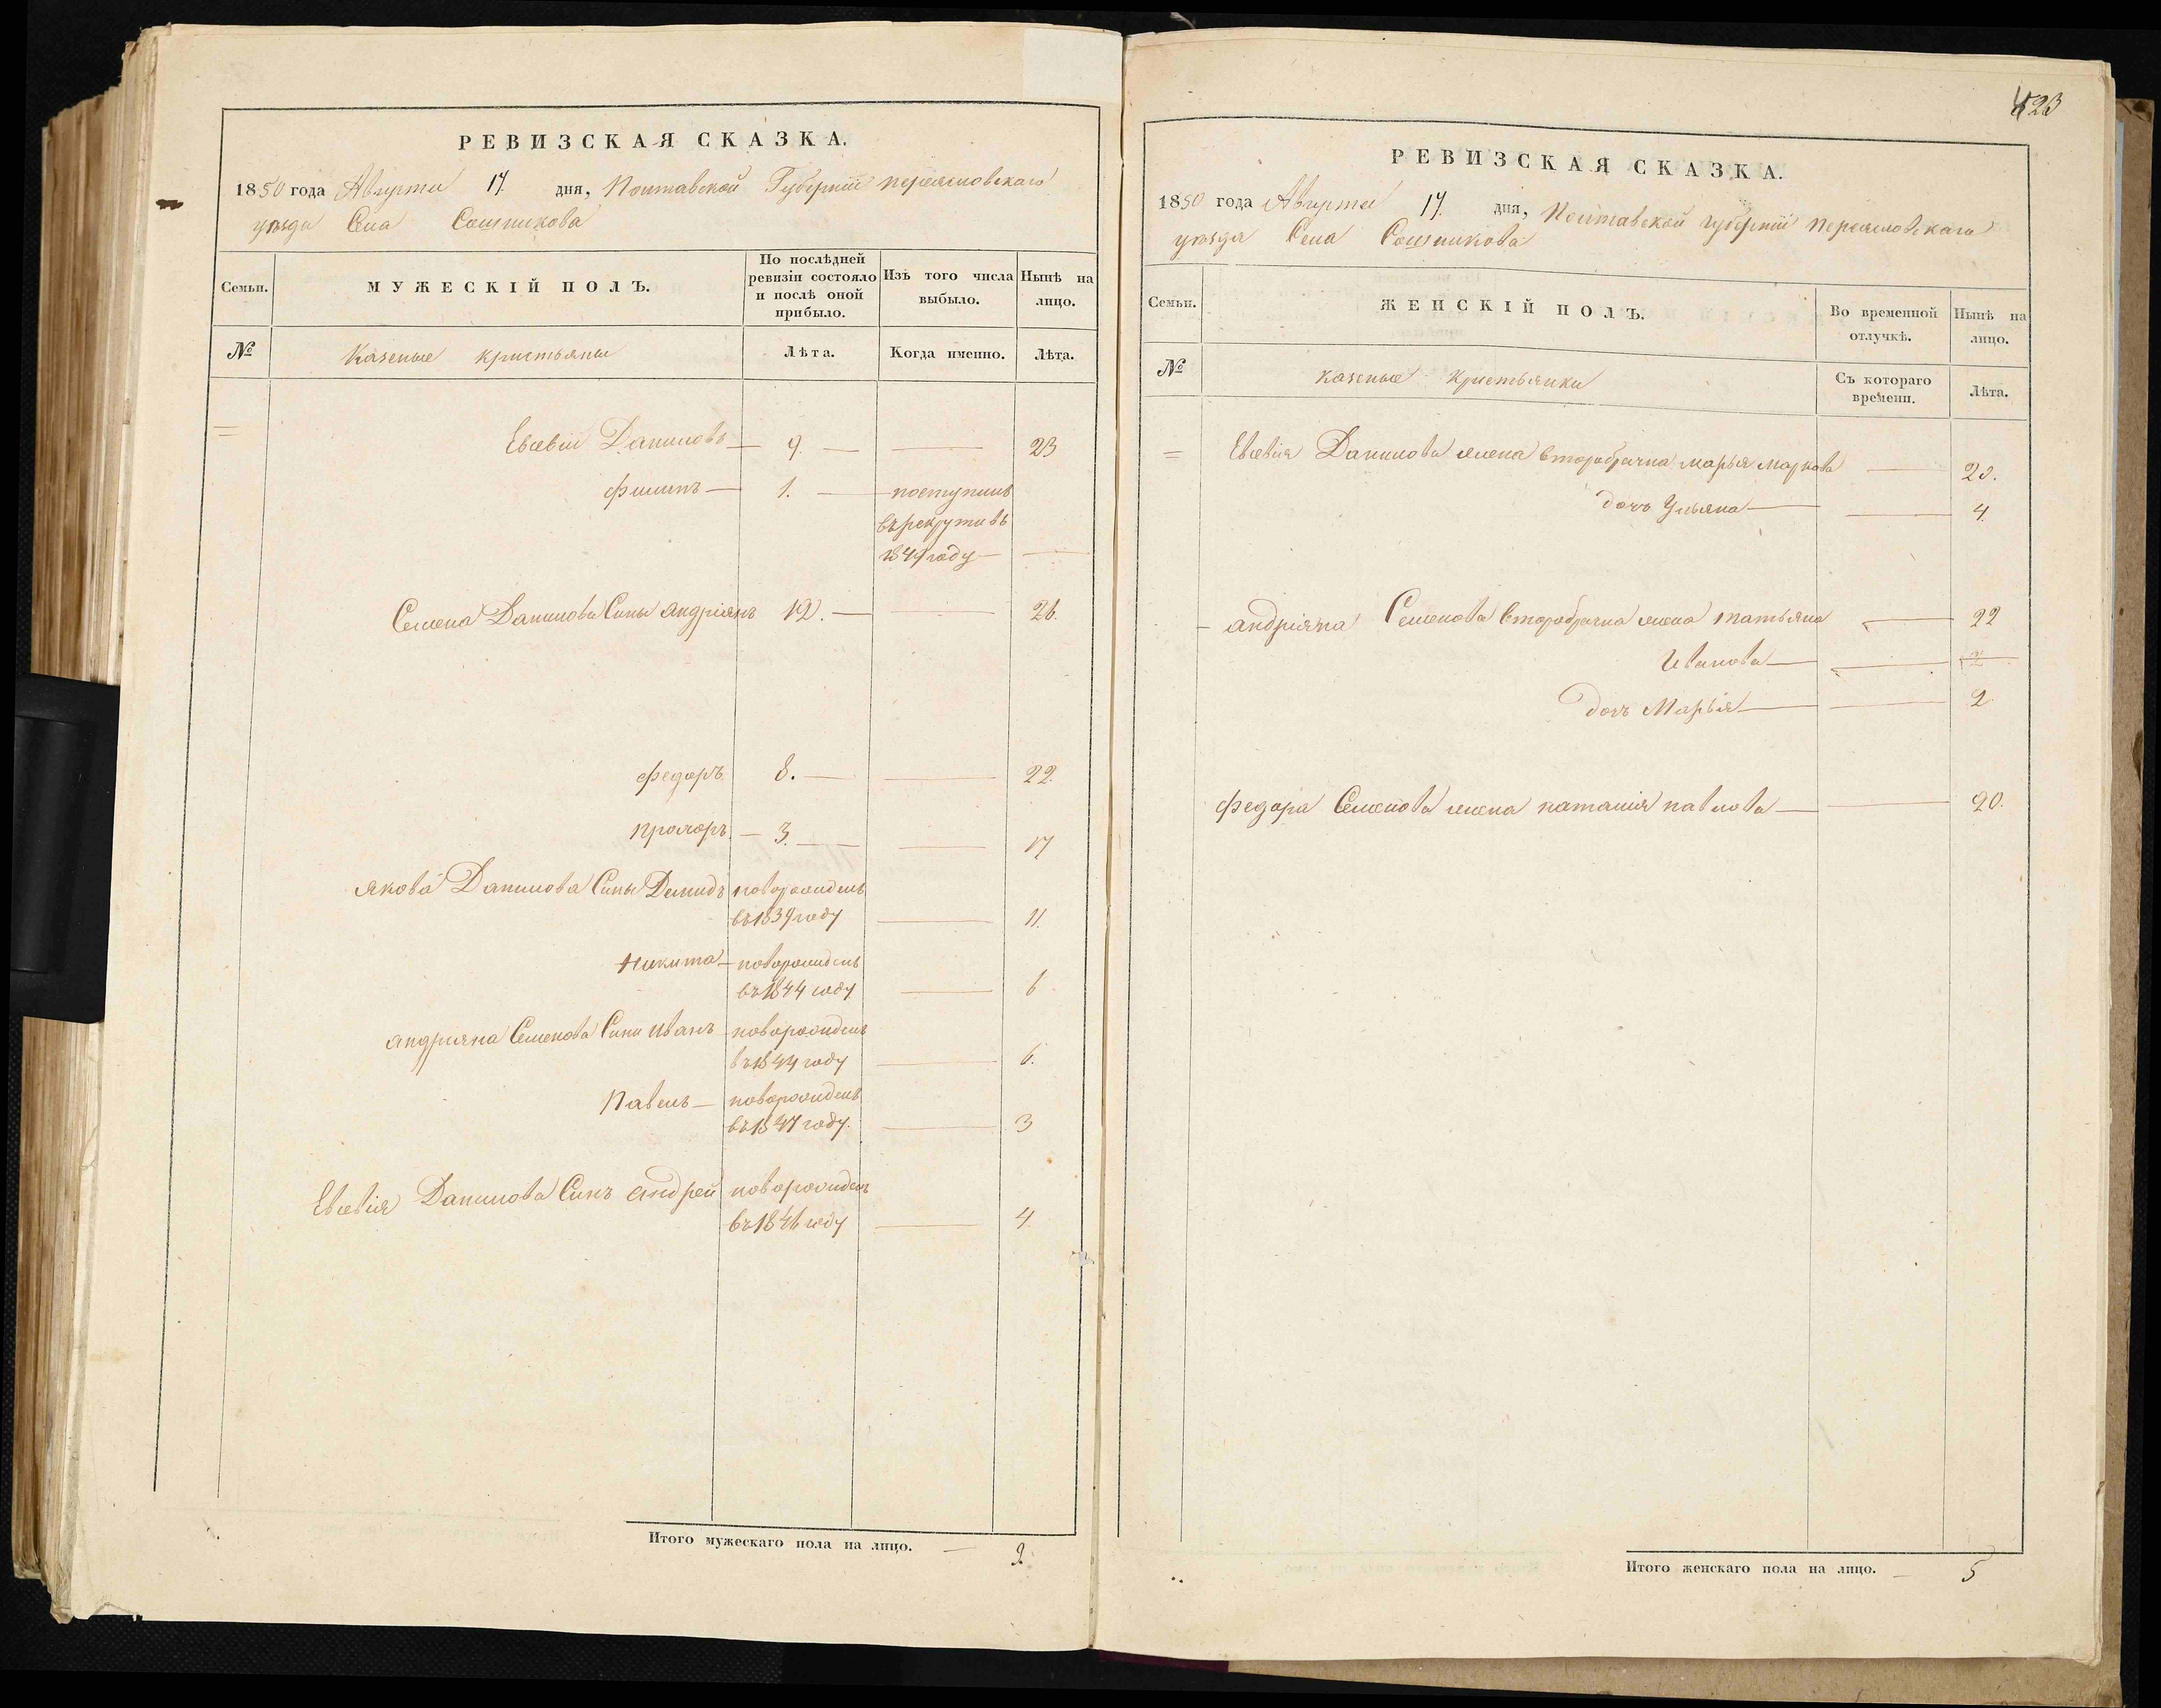 РЕВИЗСКАЯ СКАЗКА.
1850 года Августа 17. дня, Полтавской Губернiи переясловскаго
уѣзда Села Сошникова
Семьи.
МУЖЕСКІЙ ПОЛЪ.
По послѣдней ревизіи состояло и послѣ оной прибыло.
Изъ того числа выбыло.
Нынѣ на лицо.
№
Казеные кристьяны
Лѣта.
Когда именно.
Лѣта.
Евсевiй Даниловъ 9. 23
филипъ 1. поступилъ
въ рекруты въ
1849 году
Семена Данилова Сины андріянъ 12. 26.
федоръ 8. 22.
прохоръ 3. 17
якова Данилова Сины Демидъ новорожденъ
въ 1839 году 11.
никита новорожденъ
въ 1844 году 6
андрияна Семенова Сини иванъ новорожденъ
въ 1844 году 6.
павелъ новорожденъ
въ 1847 году. 3
Евсевія Данилова Синъ андрей новорожденъ
въ 1846 году 4.
Итого мужескаго пола на лицо. 9.
423
РЕВИЗСКАЯ СКАЗКА.
1850 года Августа 17. дня, Полтавской губернiи переясловскаго
уѣзда Села Сошникова
Семьи.
ЖЕНСКІЙ ПОЛЪ.
Во временной отлучкѣ.
Нынѣ на лицо.
№
казеные кристьянки
Съ котораго времени.
Лѣта.
Евсевія Данилова жена второбрачна марья маркова 20.
дочь Ульяна 4.
андріяна Семенова второбрачна жена татьяна 22
Иванова 2
дочь Марья 2.
федора Семенова жена наталія павлова 20.
Итого женскаго пола на лицо. 5